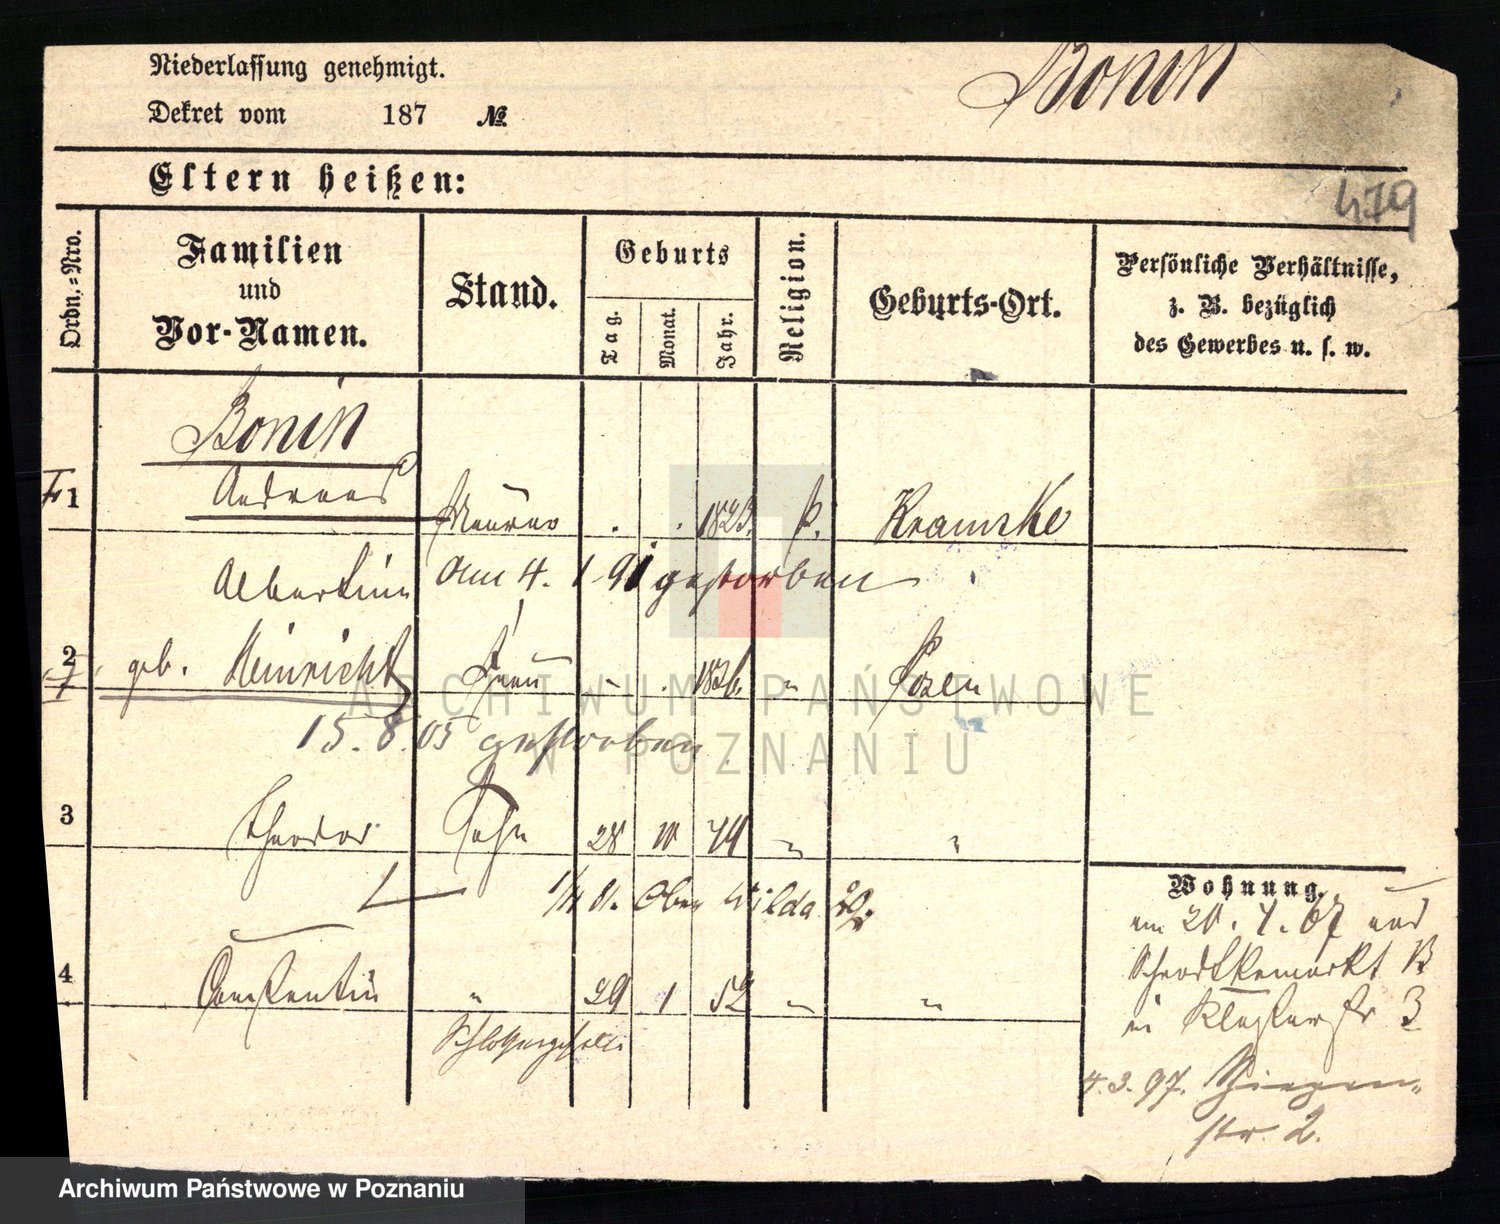 Niederlassung genehmigt.
Bonin
Dekret vom 187 №
Eltern heißen:
479
Ordn.-Nro.
Familien
und
Vor-Namen.
Stand.
Geburts
Tag.
Monat.
Jahr.
Religion.
Geburts-Ort.
Persönliche Verhältnisse,
z. B. bezüglich
des Gewerbes u. s. w.
Bonin
1 Andreas Maurer 1823. k. Kramske
Albertine am 4. 1. 91 gestorben
2 geb. Heinricht Frau 1826. " Posen
15. 8. 05 gestorben
3 Theodor Sohn 28 10 49 " "
Ober Wilda
Wohnung.
am 20. 4. 67
4 Constantin " 29 1 52 " "
in Klosterstr 3
Schlossergeselle
4. 3. 97.
str. 2.
ARCHIWUM PAŃSTWOWE
W POZNANIU
Archiwum Państwowe w Poznaniu